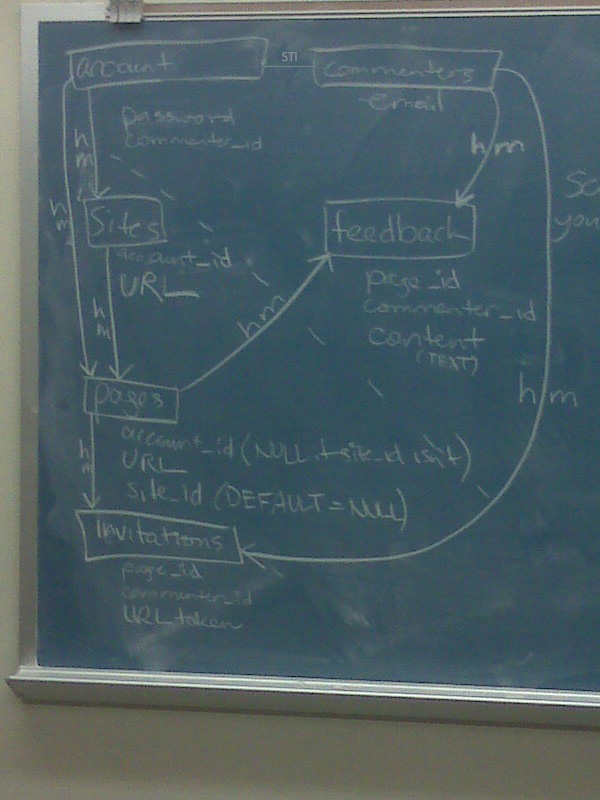 account
STI
commenters
password
commenter_id
email
hm
hm
hm
Sites
feedback
account_id
URL
page_id
commenter_id
content
(TEXT)
hm
hm
hm
pages
account_id (NULL if site_id isn't)
URL
site_id (DEFAULT=NULL)
hm
Invitations
page_id
commenter_id
URL token
So
you